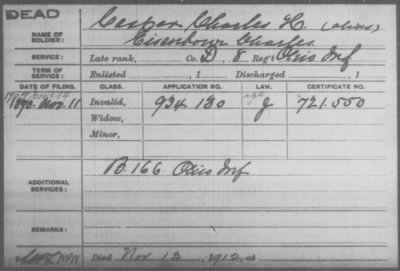 DEAD
NAME OF SOLDIER: Casper Charles H. (alias)
Eisenhour Charles
SERVICE: Late rank, Co. D, 8 Reg't Ohio Inf
TERM OF SERVICE: Enlisted , 1 Discharged , 1
DATE OF FILING. CLASS. APPLICATION NO. LAW. CERTIFICATE NO.
1890. Nov. 11 Invalid, 934.130 J 721.550
Widow,
Minor,
ADDITIONAL SERVICES: B. 166 Ohio Inf
REMARKS:
Died Nov 12, 1912, at